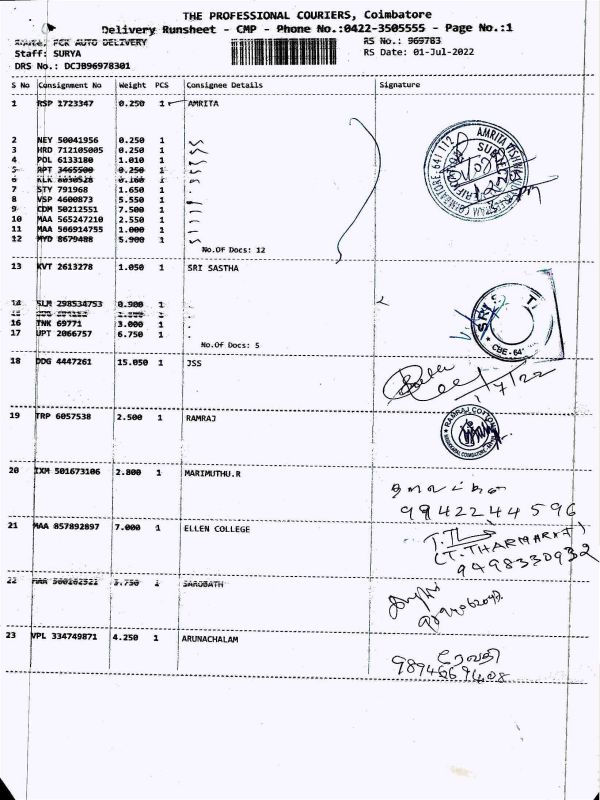 THE PROFESSIONAL COURIERS, Coimbatore
Delivery Runsheet - CMP - Phone No.:0422-3505555 - Page No.:1
Route, PCK AUTO DELIVERY RS No.: 969783
Staff: SURYA RS Date: 01-Jul-2022
DRS No.: DCJB96978301
S No Consignment No Weight PCS Consignee Details Signature
1 RSP 1723347 0.250 1 AMRITA
2 NEY 50041956 0.250 1
3 MRD 712105005 0.250 1
4 POL 6133180 1.010 1
5 RPT 3465500 0.250 1
6 KLK 0.100 1
7 STY 791968 1.650 1
8 VSP 4600873 5.550 1
9 CDM 50212551 7.500 1
10 MAA 565247210 2.550 1
11 MAA 566914755 1.000 1
12 MYD 8679488 5.900 1
No.OF Docs: 12
AMRITA VISHWA
COIMBATORE-641 112
13 KVT 2613278 1.050 1 SRI SASTHA
14 SLM 298534753 0.900 1
15
16 TNK 69771 3.000 1
17 UPT 2066757 6.750 1
No.OF Docs: 5
SRI S
CBE-64
18 DDG 4447261 15.050 1 JSS
1/7/22
19 TRP 6057538 2.500 1 RAMRAJ
RAMRAJ COTTON
20 IXM 501673106 2.800 1 MARIMUTHU.R
9942244596
21 MAA 857892897 7.000 1 ELLEN COLLEGE
(T.THARMARAJ)
9498330932
22 MAA 560162521 3.750 1 SAROBATH
23 VPL 334749871 4.250 1 ARUNACHALAM
ரேவதி
9894669408